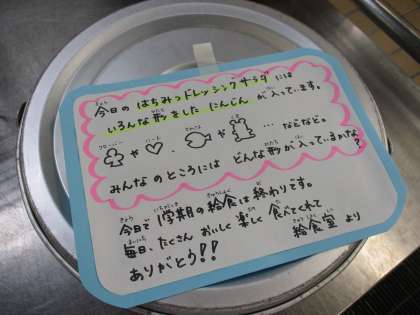 今日の はちみつドレッシングサラダ には
いろんな形をした にんじん が入っています。
クローバー や ハート 、 や … などなど。
みんなのところには どんな形が入っているかな?
今日で 1学期の給食は終わりです。
毎日、たくさん おいしく 楽しく 食べてくれて
ありがとう!! 給食室 より